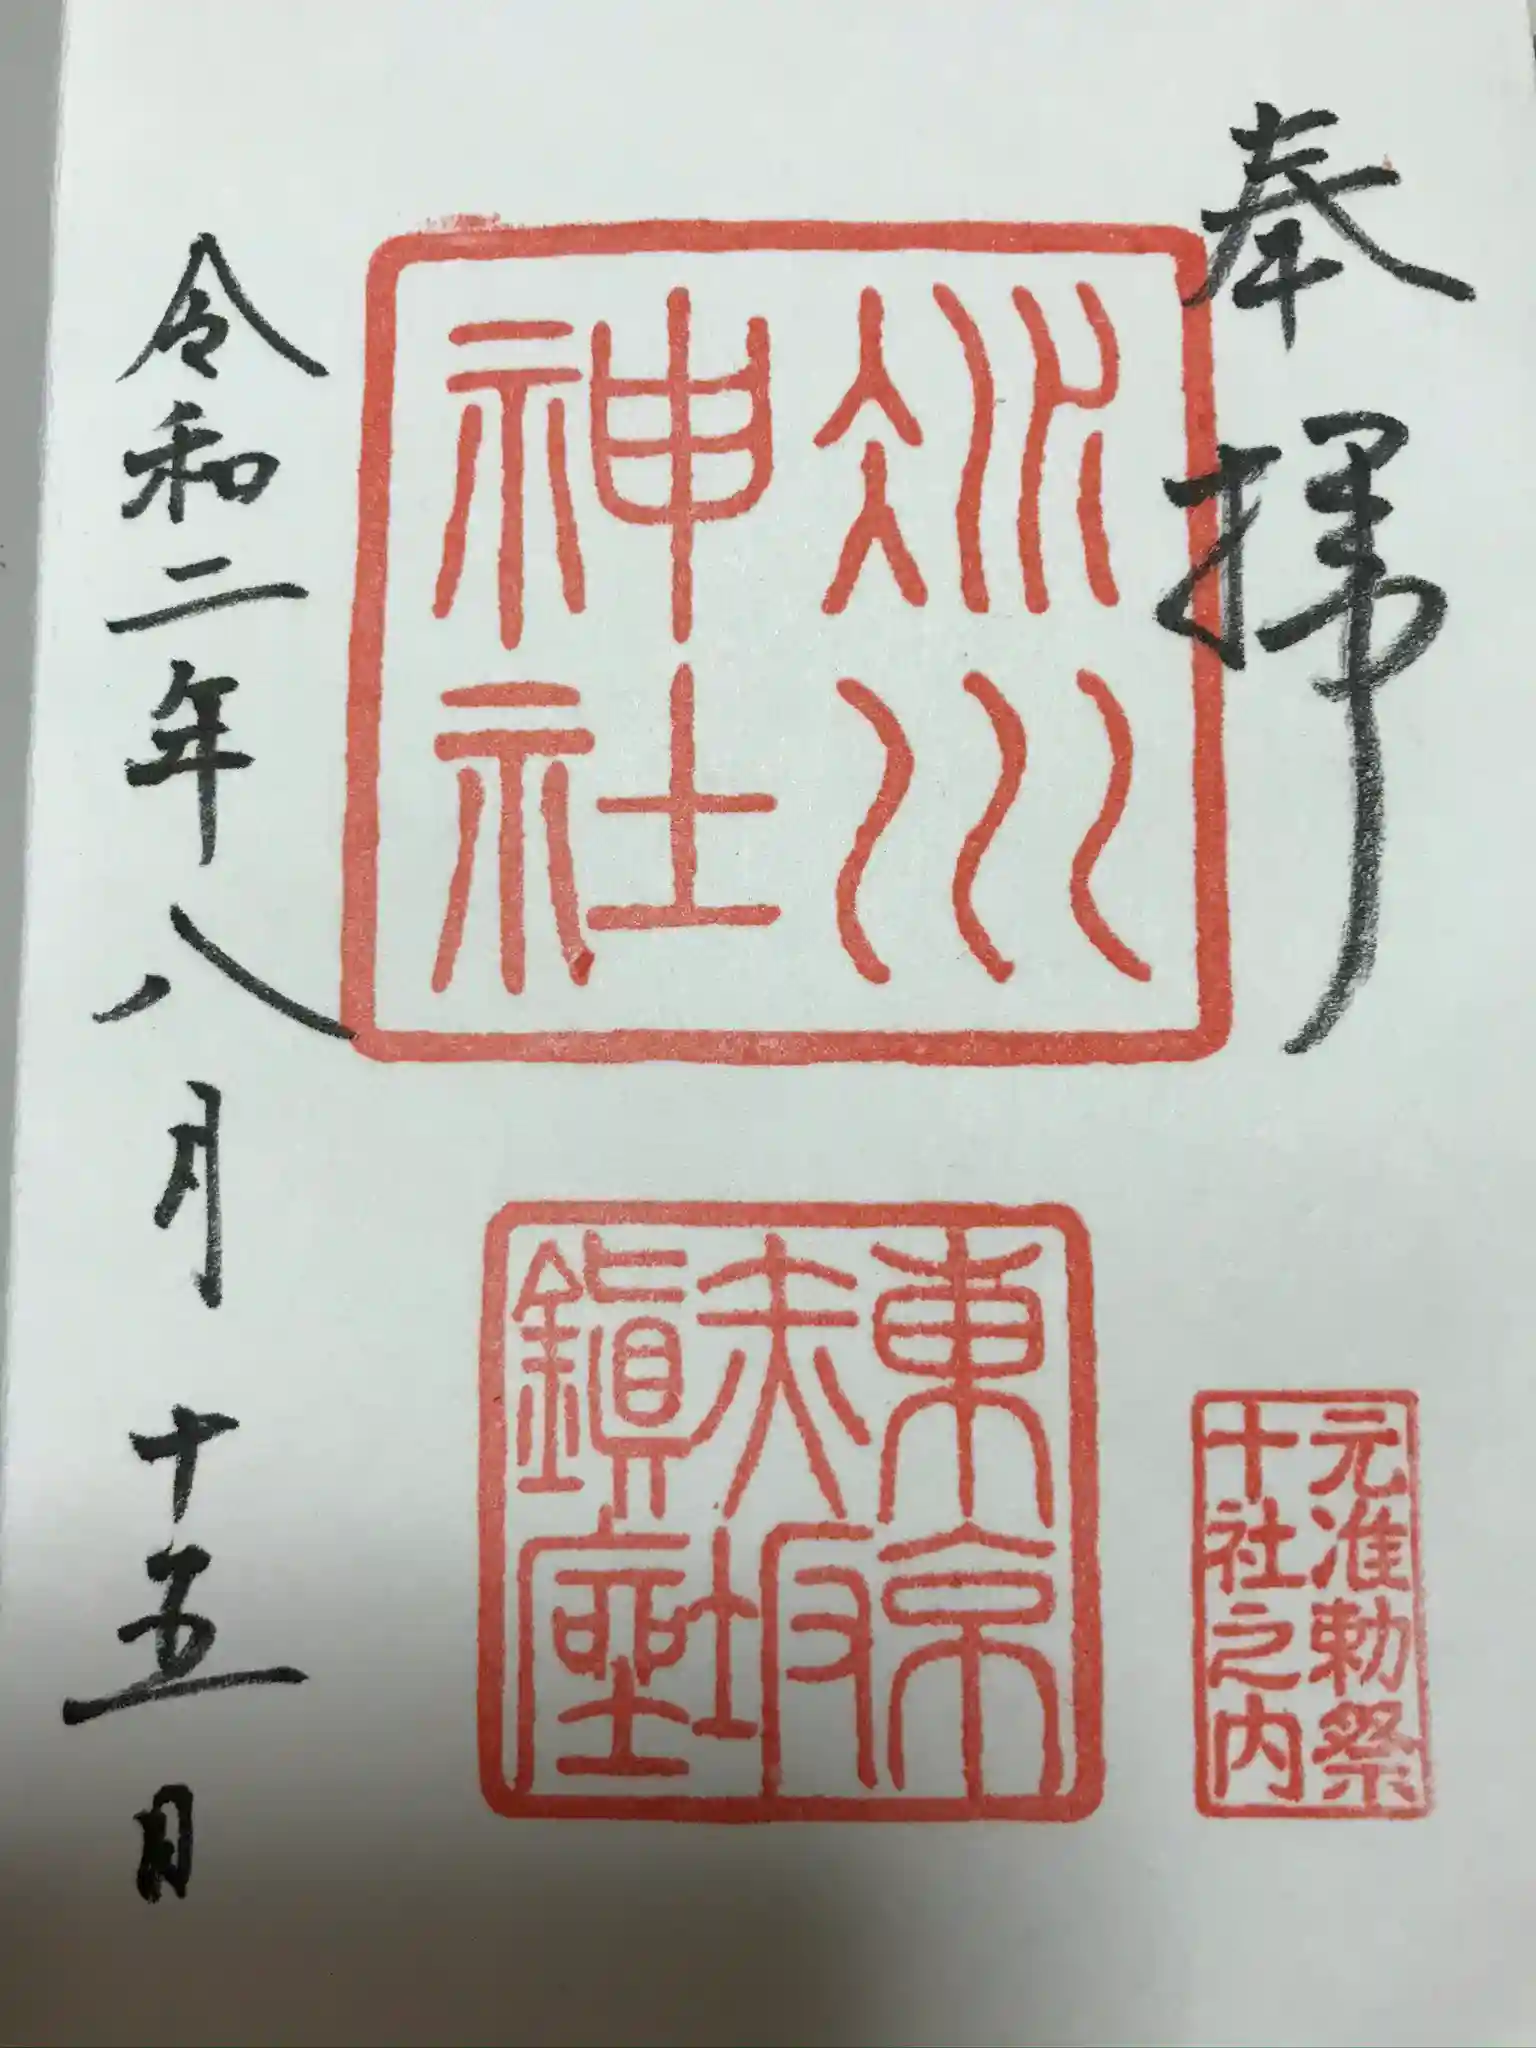 奉拝
氷川
神社
元准勅祭
十社之内
東京
赤坂
鎮座
令和二年八月十五日